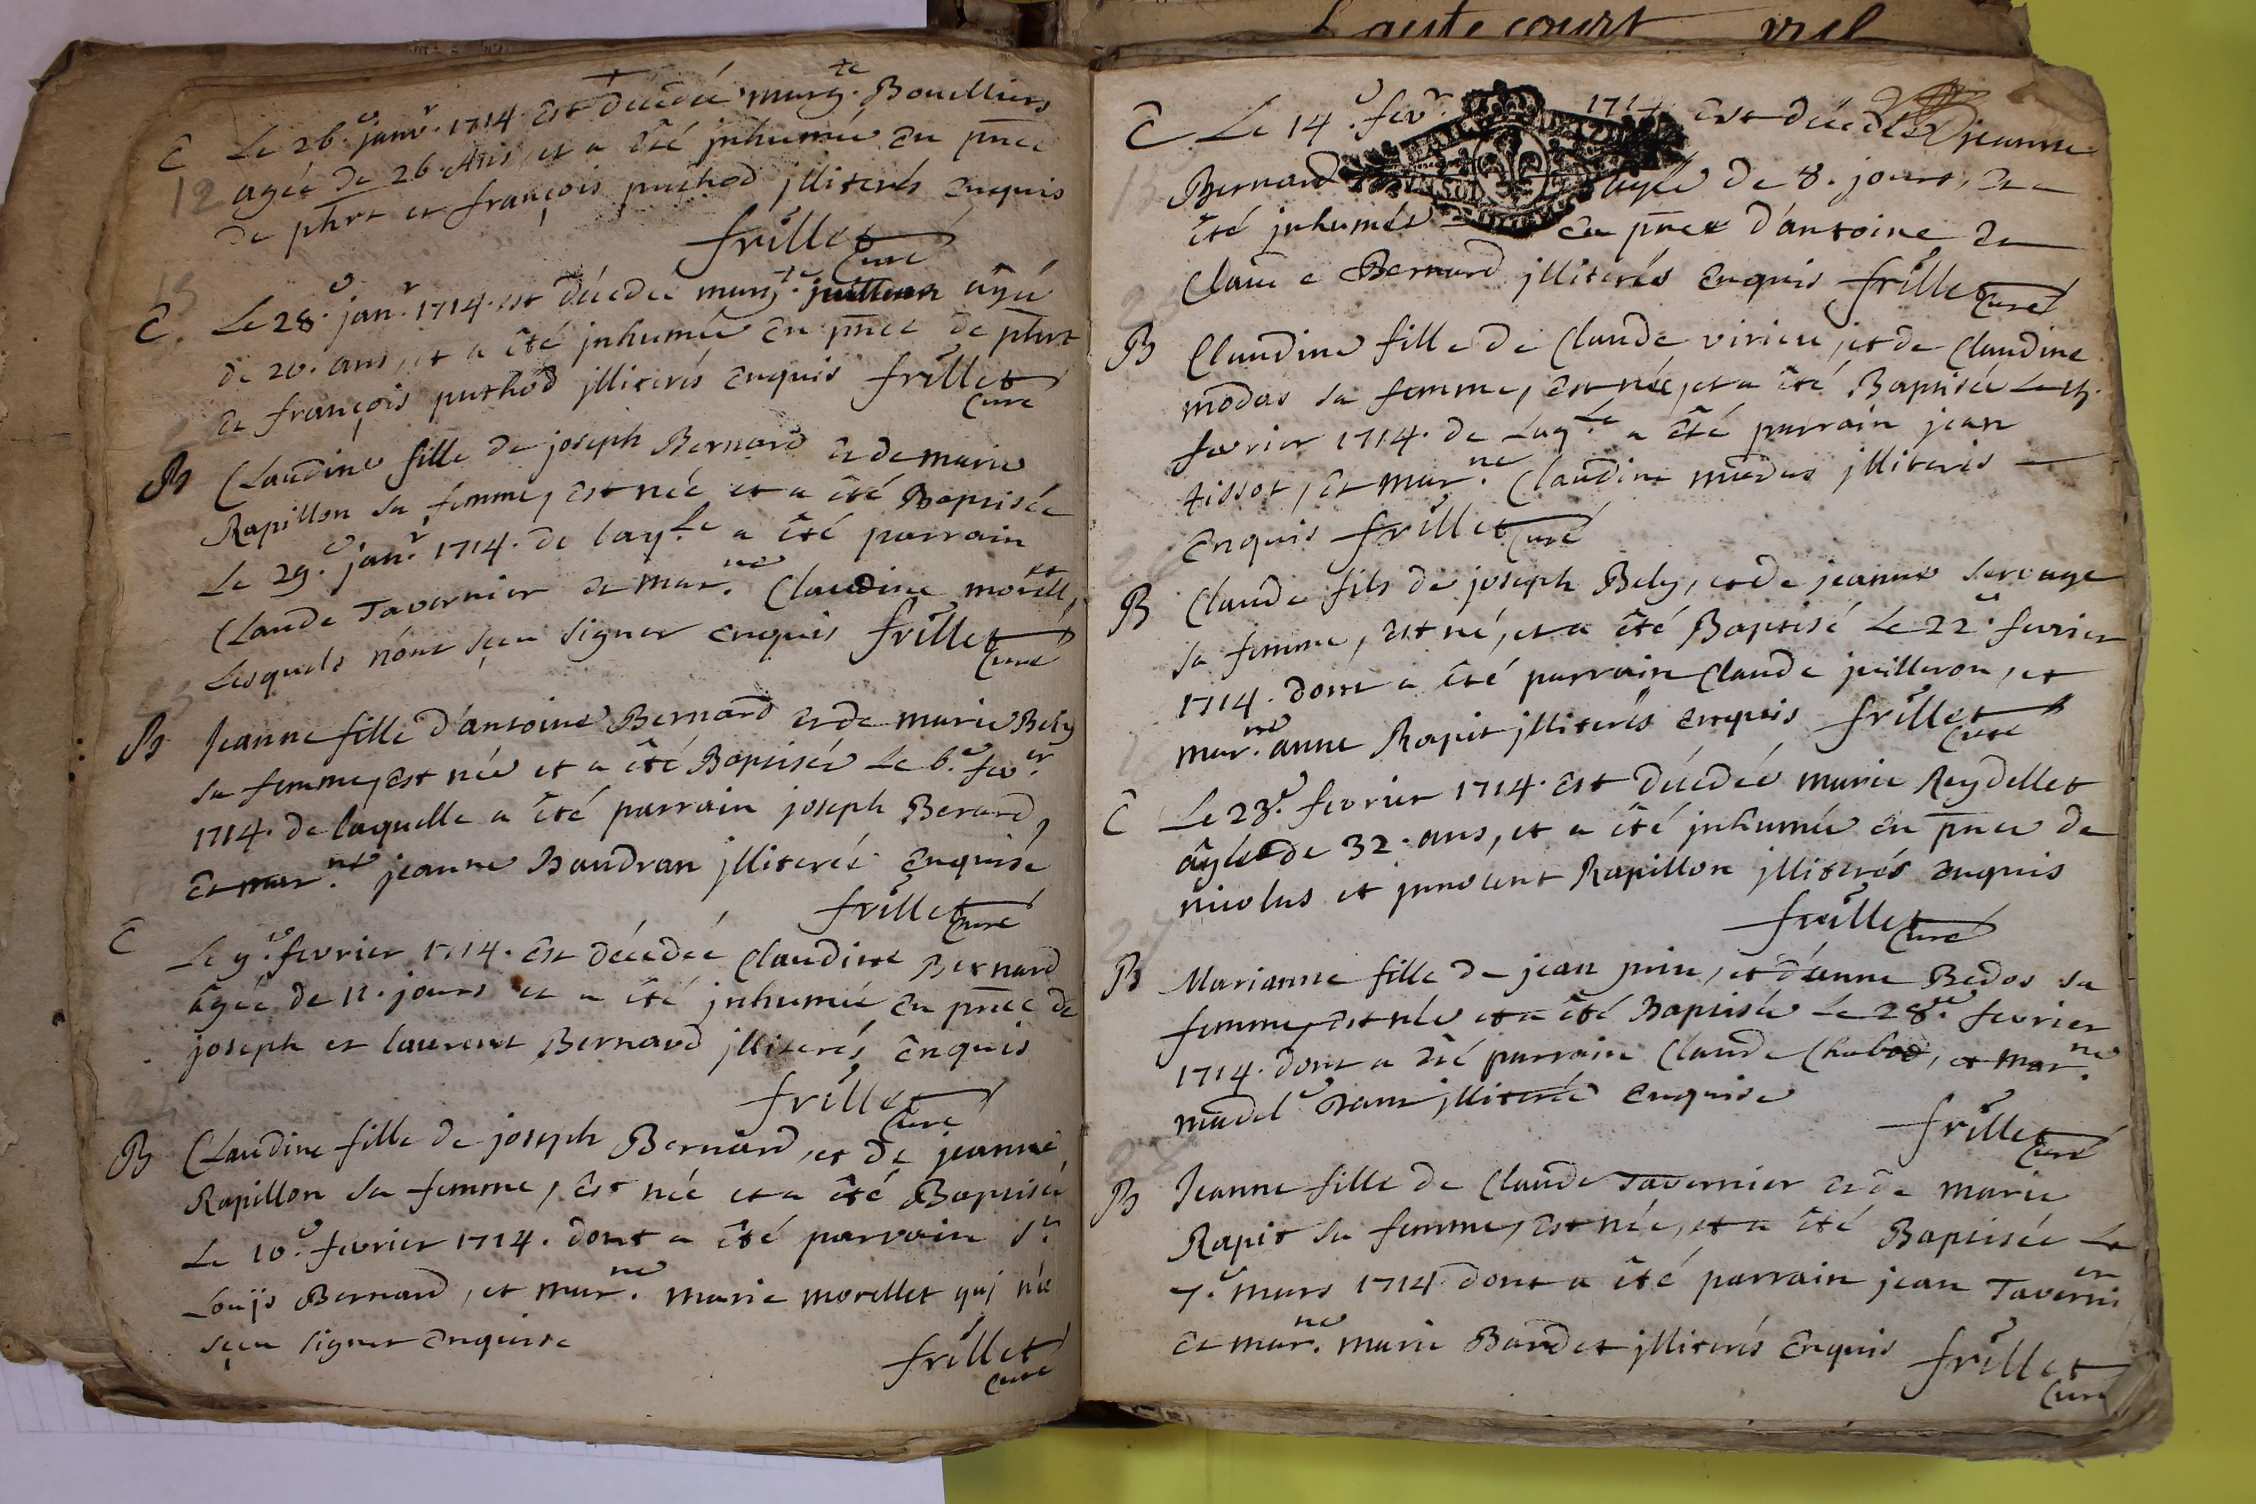 C Le 26.e janv.r 1714. est décédée marg.te Bouelliers
12 agée de 26 Ans, et a été jnhumée en pnce
de phrt et françois puthod jlliterés enquis
frillet
Curé
C. Le 28.e jan.r 1714. est décedée marg.te juilleron agée
de 20. ans, et a été jnhumée en pnce de phrt
et françois puthod jlliterés enquis frillet
Curé
B Claudine fille de joseph Bernard et de marie
Rapillon sa femme, est née et a été Baptisée
Le 29.e jan.r 1714. de laq.le a été parrain
Claude Tavernier et mar.ne Claudine morell,et
Lesquels n'ont sçeu signer enquis frillet
Curé
B Jeanne fille d'antoine Bernard et de marie Bely
sa femme, est née et a été Baptisée le 6.e fev.er
1714. de laquelle a été parrain joseph Berard,
et mar.ne jeanne Baudran jlliterée enquise
frillet
Curé
C Le 9.e fevrier 1714. est décedée Claudine Bernard
âgée de 11. jours et a été jnhumée en pnce de
joseph et laurent Bernard jlliterés enquis
frillet
Curé
B Claudine fille de joseph Bernard, et de jeanne
Rapillon sa femme, est née et a été Baptisée
Le 10.e fevrier 1714. dont a été parrain s.r
Louijs Bernard, et mar.ne marie morellet quj n'a
sçeu signer enquise
frillet
Curé
Hautecourt
C Le 14.e fev.r 1714 est décédée jeanne
Bernard agée de 8. jours, et a
été jnhumée en pnce d'antoine et
Claude Bernard jlliterés enquis frillet
Curé
B Claudine fille de Claude virieu, et de Claudine
modas sa femme, est née, et a été Baptisée Le
fevrier 1714. de Laq.le a été parrain jean
tissot, et mar.ne Claudine modas jlliterés
enquis frillet Curé
B Claude fils de joseph Bely, et de jeanne servage
sa femme, est né, et a été Baptisé Le 22.e fevrier
1714. dont a été parrain Claude juilleron, et
mar.ne anne Rapit jlliterés enquis frillet
Curé
C Le 23.e fevrier 1714. est décédée marie Reydellet
âgée de 32. ans, et a été jnhumée en pnce de
nicolas et jnnocent Rapillon jlliterés enquis
frillet
Curé
B Marianne fille de jean et d'anne Bedos sa
femme, est née et a été Baptisée Le 28.e fevrier
1714. dont a été parrain Claude Chabod, et mar.ne
madel.e jlliterée enquise
frillet
Curé
B Jeanne fille de Claude Tavernier et de marie
Rapit sa femme, est née, et a été Baptisée Le
7.e mars 1714 dont a été parrain jean Taverni er
et mar.ne marie Bardet jlliterés enquis frillet
Curé